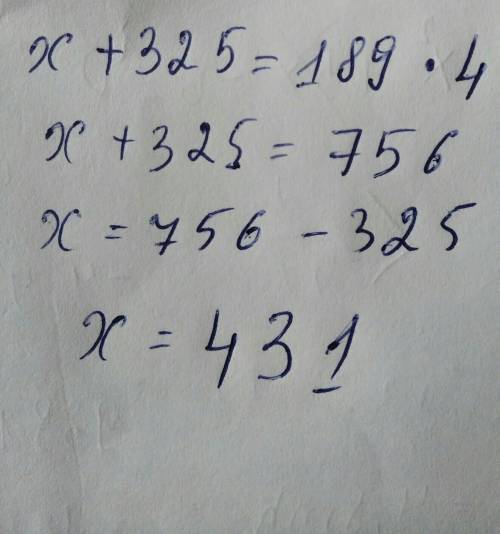 x + 325 = 189 · 4
x + 325 = 756
x = 756 - 325
x = 431